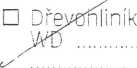 ☐ Dřevohliník
WD ..............
..............